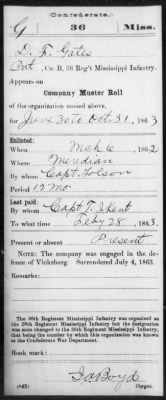 Confederate.
G 36 Miss.
D. F. Gates
Pvt, Co. B, 36 Reg't Mississippi Infantry.
Appears on
Company Muster Roll
of the organization named above,
for June 30 to Oct. 31, 1863
Enlisted:
When Mch 6, 1862
Where Meridian
By whom Capt. Folson
Period 12 Mo
Last paid:
By whom Capt T. J. Kent
To what time Feby 28, 1863.
Present or absent Present
NOTE: The company was engaged in the defence of Vicksburg. Surrendered July 4, 1863.
Remarks:
The 36th Regiment Mississippi Infantry was organized as
the 38th Regiment Mississippi Infantry but the designation
was soon changed to the 36th Regiment Mississippi Infantry,
that being the number by which this organization was known
at the Confederate War Department.
Book mark:
(642) Boyd
Copyist.